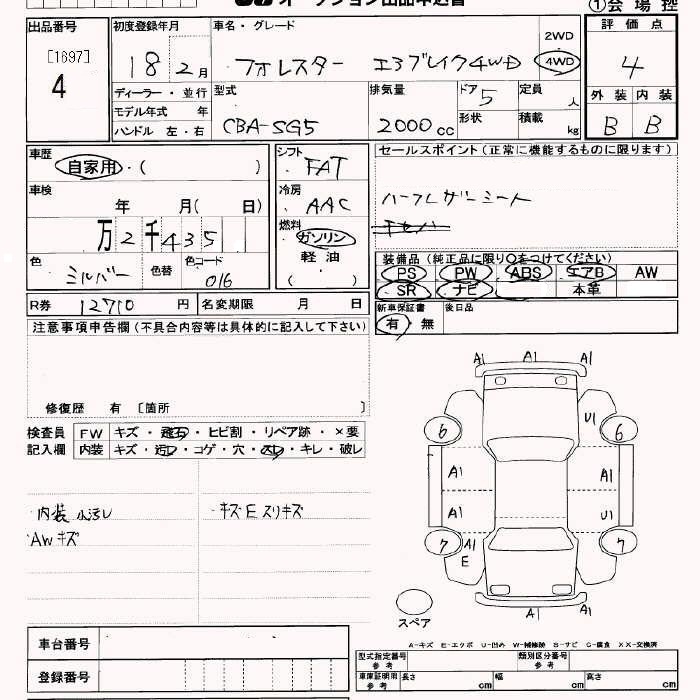 オークション出品申込書
①会場控
出品番号
[1697]
4
初度登録年月
18 2月
ディーラー・並行
モデル年式 年
ハンドル 左・右
車名・グレード
フォレスター エアブレイク4WD
2WD
4WD
型式
CBA-SG5
排気量
2000cc
ドア
5
形状
定員
人
積載
kg
評価点
4
外装 内装
B B
車歴
自家用・( )
車検
年 月( 日)
万2千435
色
シルバー
色替
色コード
016
シフト
FAT
冷房
AAC
燃料
ガソリン
軽油
( )
セールスポイント(正常に機能するものに限ります)
ハーフレザーシート
装備品(純正品に限り○をつけてください)
PS PW ABS エアB AW
SR ナビ 本革
R券 12710 円 名変期限 月 日
新車保証書
有・無
後日品
注意事項申告欄(不具合内容等は具体的に記入して下さい)
修復歴 有 〔箇所 〕
検査員
記入欄
FW キズ・飛石・ヒビ割・リペア跡・×要
内装 キズ・汚レ・コゲ・穴・スレ・キレ・破レ
内装 小汚レ
AWキズ
キズE スリキズ
A1 A1 A1
U1
6 6
A1 A1
A1 U1
7 A1 7
E
A1 A1
スペア
A-キズ E-エクボ U-凹み W-補修跡 S-サビ C-腐食 XX-交換済
車台番号
登録番号
型式指定番号
参考
類別区分番号
参考
車庫証明用
参考
長さ cm 幅 cm 高さ cm